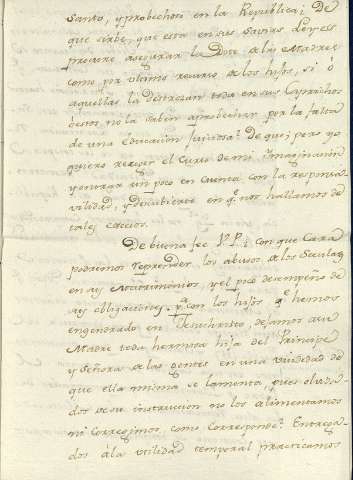 Santo, y probechoso en la Republica; De
que sirbe, que esta en sus Savias Leyes
procure asegurar la Dote a las Madres
como por ultimo recurso a los hijos, si ô
aquellas la destrozan toda en sus Caprichos
ô estos no la saben aprobechar por la falta
de una Educacion juiciosa? De que; pero yo
quiero recoger el Curso de mi Imaginacion
y entrar un poco en cuenta con la responsa-
vilidad, y descubierto en q.e nos hallamos de
tales excesos.
De buena fee P.P.; con que Cara
podremos reprender los abusos de los Seculares
en sus Matrimonios, y el poco desempeño de
sus obligaciones p.a con los hijos q.e hemos
engendrado en Jesuchristo, dejamos a su
Madre toda hermosa hija del Principe
y Señora de las gentes en una viudedad de
que ella misma se lamenta, pues olvida-
dos de su instruccion no los alimentamos
ni Corregimos, como Corresponde? Entrega-
dos â la utilidad temporal practicamos